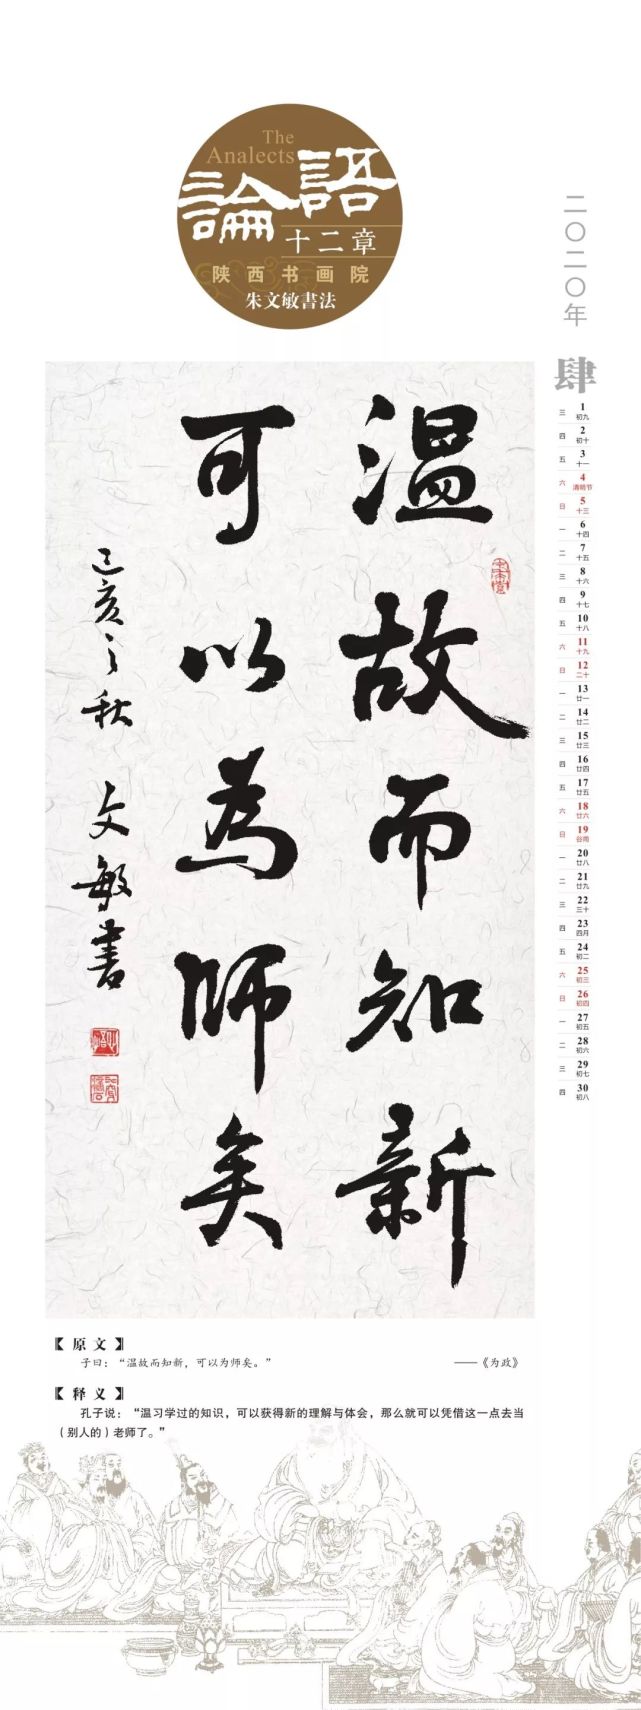 The
Analects
論語
十二章
陕西书画院
朱文敏書法
二〇二〇年
肆
三 1 初九
四 2 初十
五 3 十一
六 4 清明节
日 5 十三
一 6 十四
二 7 十五
三 8 十六
四 9 十七
五 10 十八
六 11 十九
日 12 二十
一 13 廿一
二 14 廿二
三 15 廿三
四 16 廿四
五 17 廿五
六 18 廿六
日 19 谷雨
一 20 廿八
二 21 廿九
三 22 三十
四 23 四月
五 24 初二
六 25 初三
日 26 初四
一 27 初五
二 28 初六
三 29 初七
四 30 初八
温故而知新
可以為師矣
己亥之秋 文敏書
【原文】
子曰：“温故而知新，可以为师矣。” ——《为政》
【释义】
孔子说：“温习学过的知识，可以获得新的理解与体会，那么就可以凭借这一点去当
（别人的）老师了。”